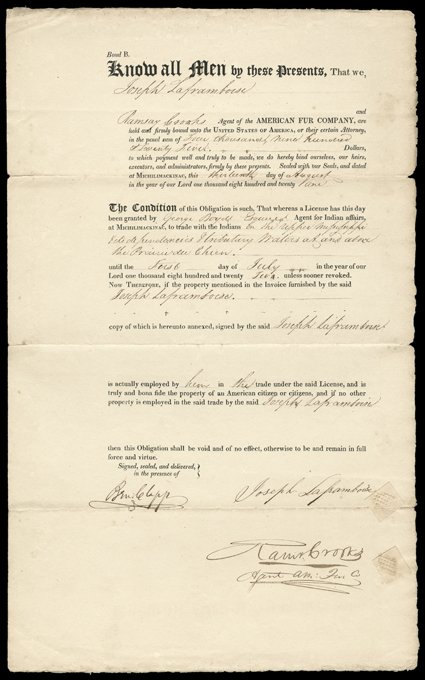 Bond B.
Know all Men by these Presents, That we,
Joseph Laframboise
and
Ramsay Crooks Agent of the AMERICAN FUR COMPANY, are
held and firmly bound unto the UNITED STATES OF AMERICA, or their certain Attorney,
in the penal sum of Four thousand nine hundred
& Twenty Dollars,
to which payment well and truly to be made, we do hereby bind ourselves, our heirs,
executors, and administrators, firmly by these presents. Sealed with our Seals, and dated
at MICHILIMACKINAC, this thirteenth day of August
in the year of our Lord one thousand eight hundred and twenty one
The Condition of this Obligation is such, That whereas a License has this day
been granted by George Boyd Esquire Agent for Indian affairs,
at MICHILIMACKINAC, to trade with the Indians On the upper Mississippi
& dependencies & tributary Waters at and above
the Prairie du Chien.
until the First day of July in the year of our
Lord one thousand eight hundred and twenty Two, unless sooner revoked.
Now THEREFORE, if the property mentioned in the Invoice furnished by the said
Joseph Laframboise.
copy of which is hereunto annexed, signed by the said Joseph Laframboise
is actually employed by him in the trade under the said License, and is
truly and bona fide the property of an American citizen or citizens, and if no other
property is employed in the said trade by the said Joseph Laframboise
then this Obligation shall be void and of no effect, otherwise to be and remain in full
force and virtue.
Signed, sealed, and delivered,
in the presence of
Ben. Clapp
Joseph Laframboise
Ramsay Crooks
Agent Am: Fur Co